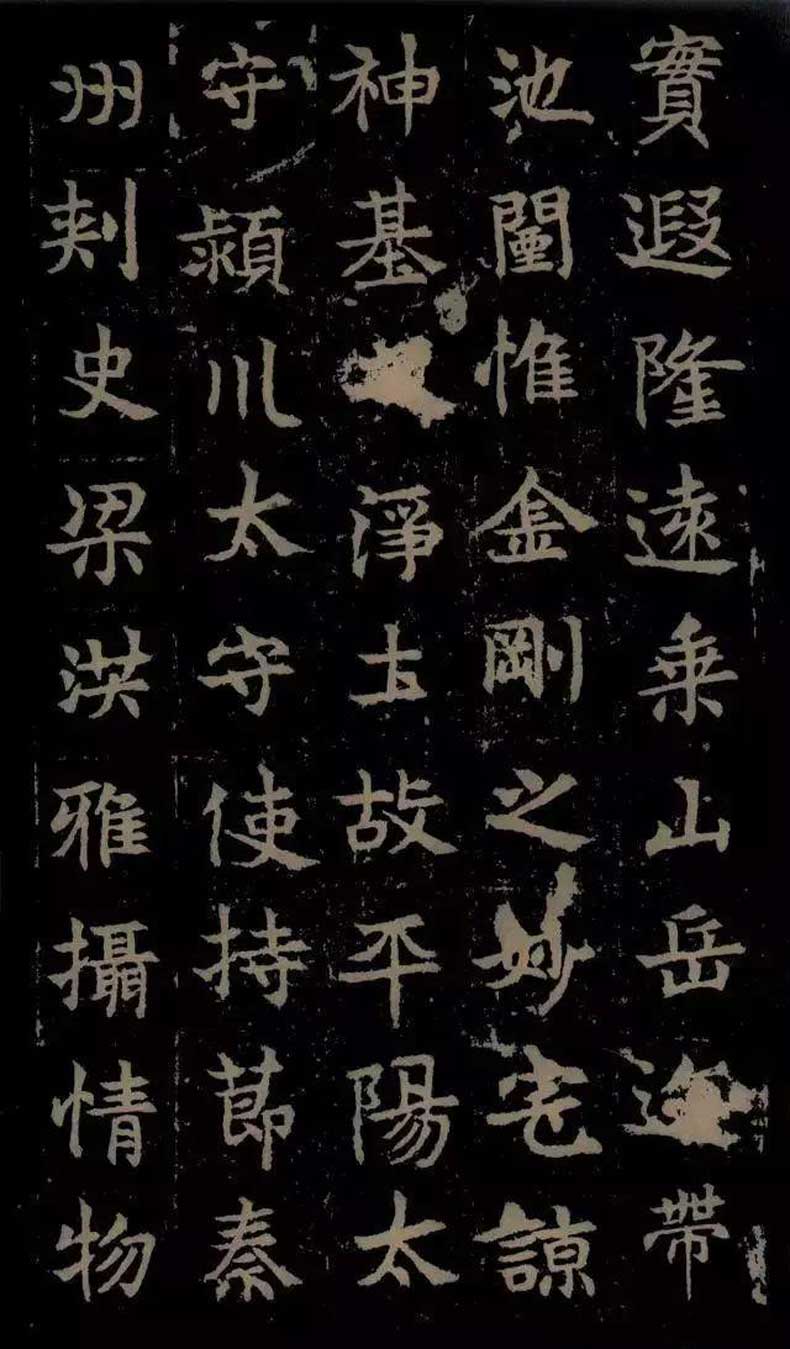 實遐隆遠乗山岳迤帶
池闉惟金剛之妙宅諒
神基淨土故平陽太
守潁川太守使持莭秦
州刾史梁洪雅攝情物